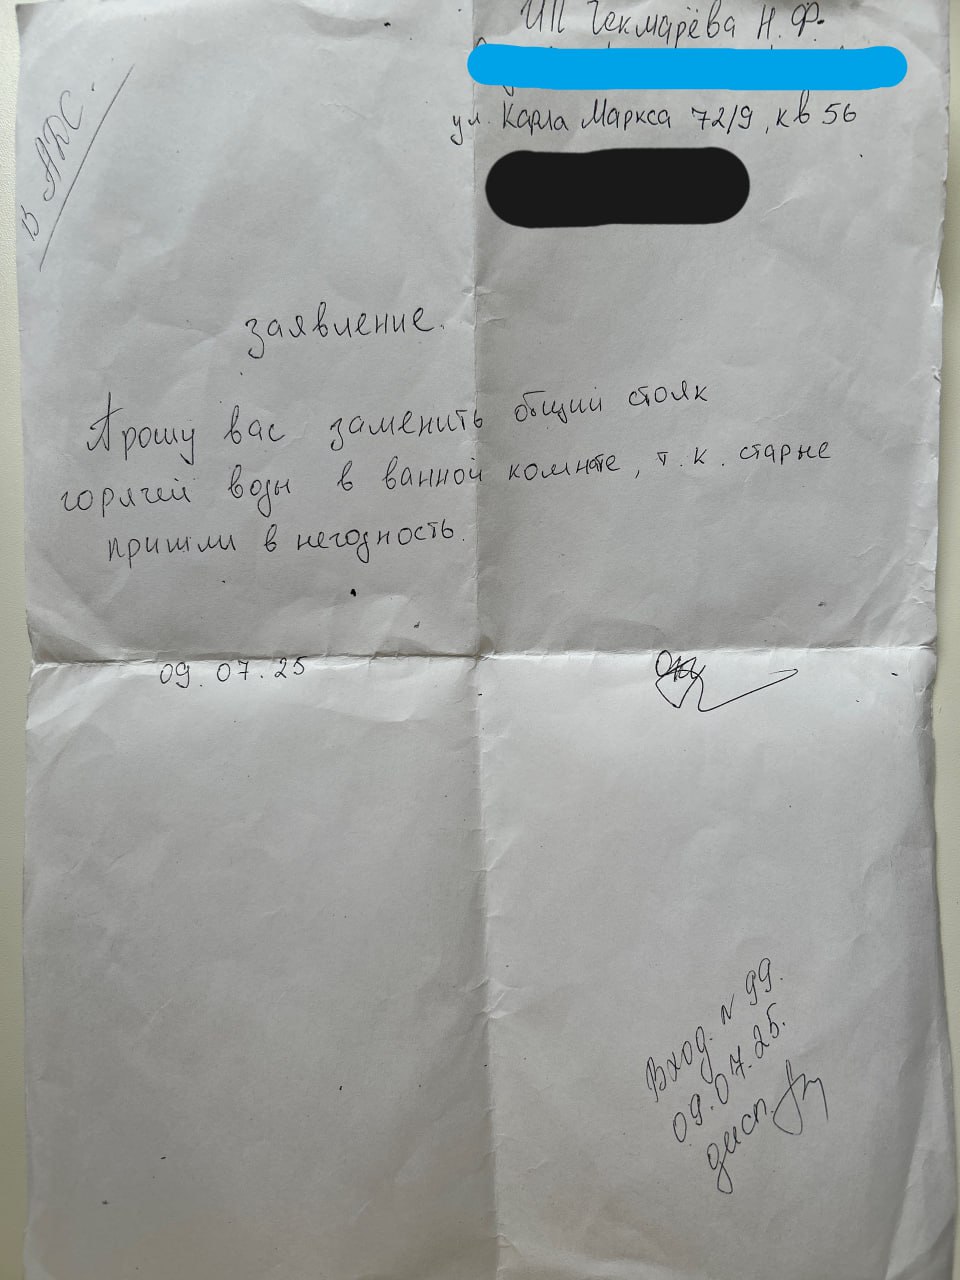 ИП Чекмарёва Н. Ф.
ул. Карла Маркса 72/9, кв 56
В АДС.
заявление.
Прошу вас заменить общий стояк
горячей воды в ванной комнате, т. к. старые
пришли в негодность.
09. 07. 25
Вход. N 99.
09. 07. 25.
дисп.